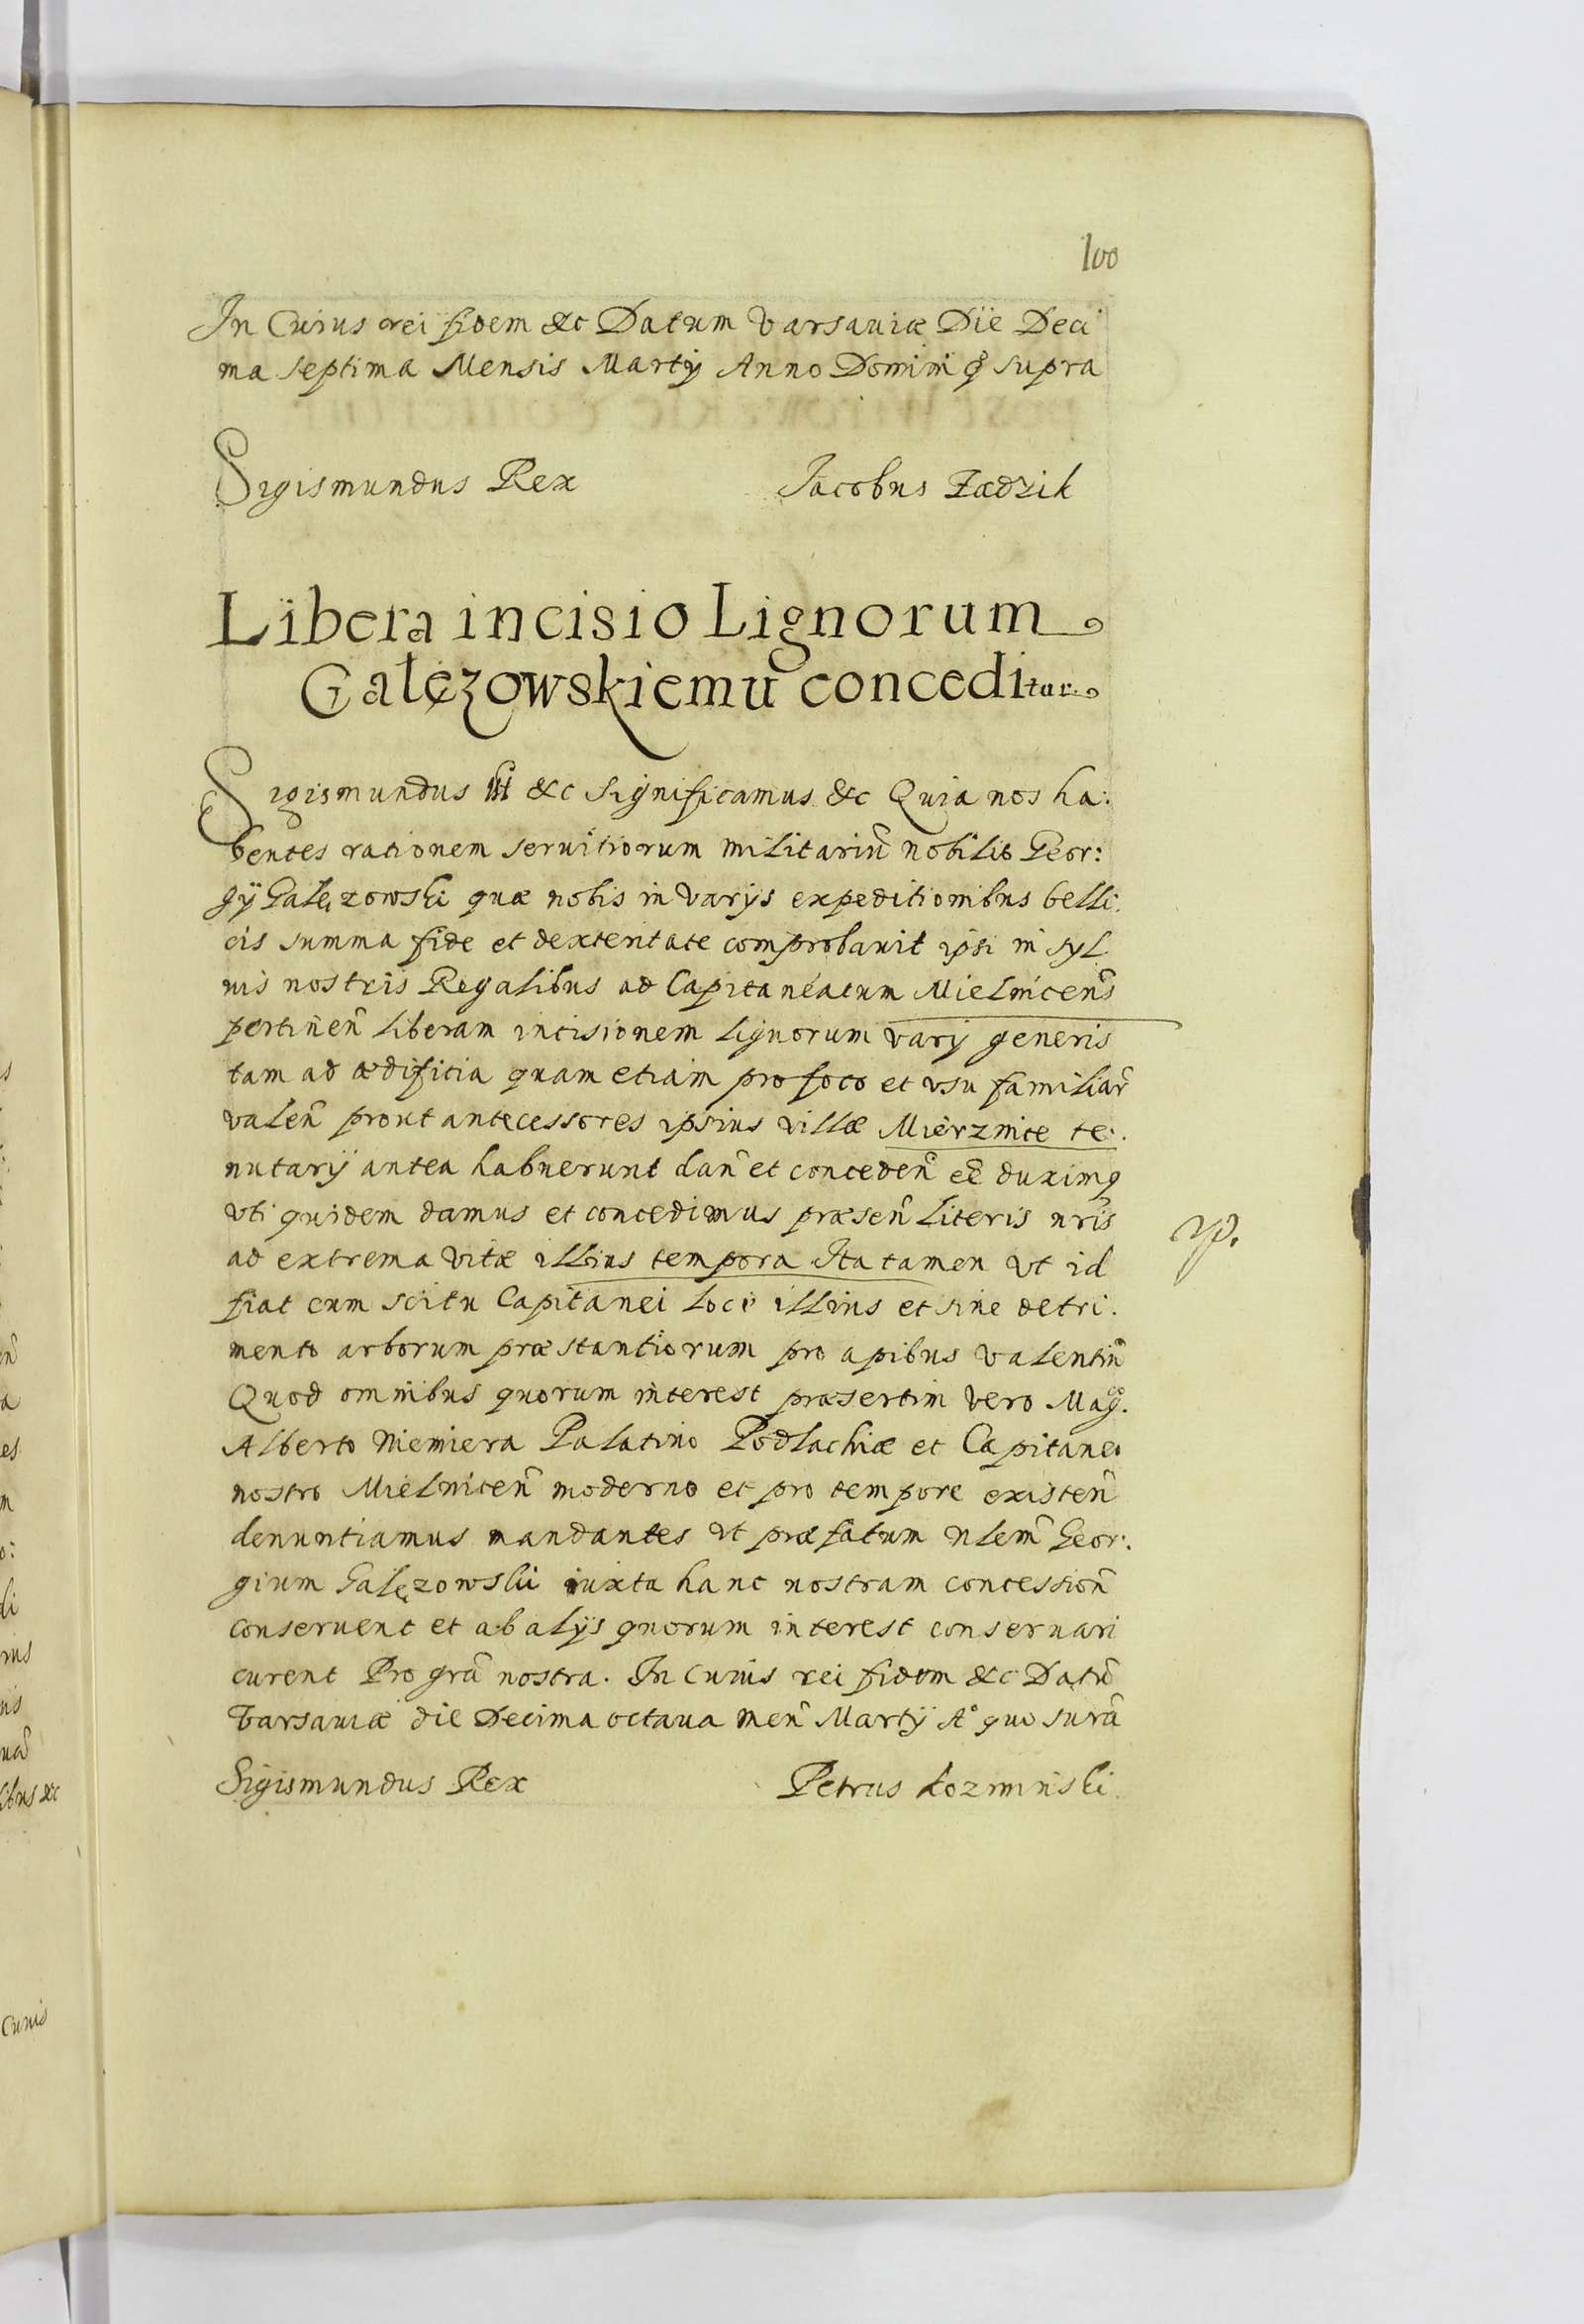 100
In Cuius rei fidem &c Datum Varsauiæ Die Deci
ma septima Mensis Martij Anno Domini ꝙ supra
Sigismundus Rex Jacobus Zadzik
Libera incisio Lignorum
Gałęzowskiemu conceditur
Sigismundus III &c Significamus &c Quia nos ha:
bentes rationem seruitiorum militariũ nobilis Geor:
gij Gałęzowski quæ nobis in varijs expeditionibus belli.
cis summa fide et dexteritate comprobauit ipsi in syl
uis nostris Regalibus ad Capitaneatum Mielnicen̄s
pertinen̄ liberam incisionem lignorum varij generis
tam ad ædificia quam etiam pro foco et vsu familiar̄
valen̄ prout antecessores ipsius villæ Mierzwice te:
nutarij antea habuerunt dan̄ et conceden̄ eē duximꝯ
vti quidem damus et concedimus præsen̄ literis nr̄is
ad extrema vitæ illius tempora Ita tamen vt id
fiat cum scitu Capitanei loci illius et sine detri.
mento arborum præstantiorum pro apibus valentiũ
Quod omnibus quorum interest præsertim vero Mag.co
Alberto Niemiera Palatino Podlachiæ et Capitaneo
nostro Mielnicen̄ moderno et pro tempore existen̄
denuntiamus mandantes vt præfatum nlem̄ Geor:
gium Gałęzowski iuxta hanc nostram concession̄
conseruent et ab alijs quorum interest conseruari
curent Pro grā nostra. In cuius rei fidem &c Datũ
Varsauiæ die Decima octaua men̄ Martij A° quo surā
Sigismundus Rex Petrus Łozminski